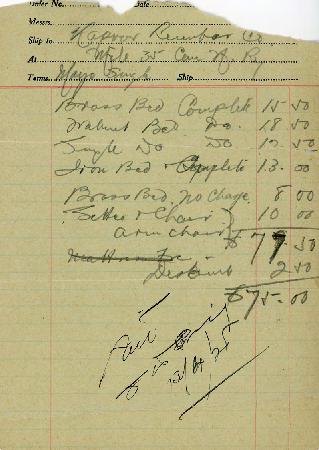 Order No. Date
Messrs.
Ship to Kapoor Lumber Co
At Mile 35 Can N. Ry
Terms Mayo Singh Ship
Brass Bed Complete 15 50
Walnut Bed Do. 18 50
Single Do Do 12 50
Iron Bed Complete 13.00
Brass Bed, no Charge 8 00
Settee & Chair } 10 00
arm chair
$ 77.50
Discount 2 50
$75-00
Paid